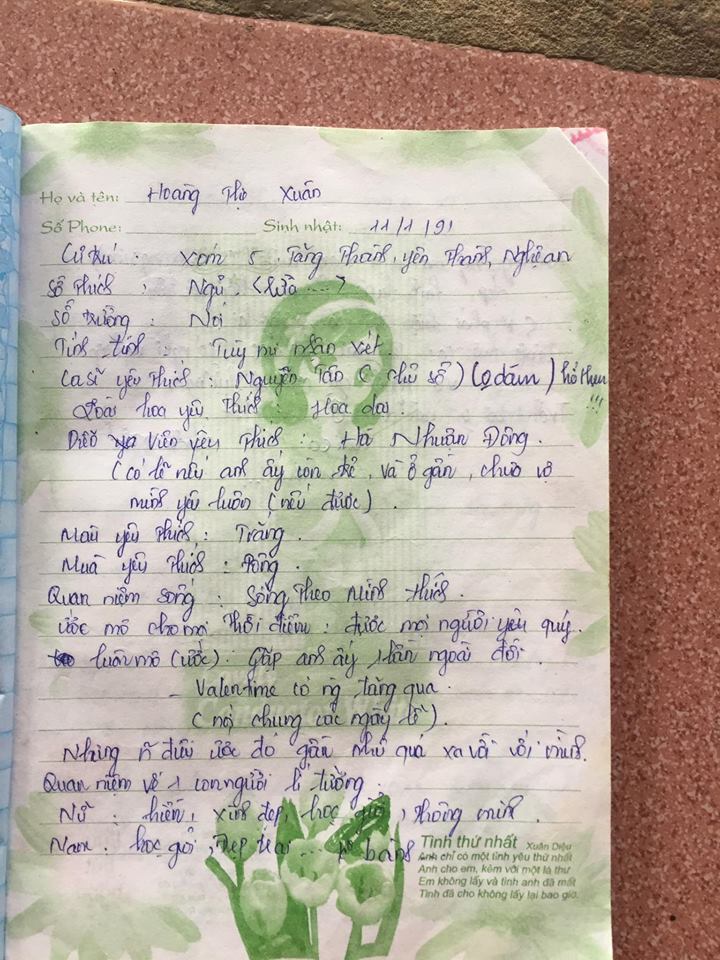 Họ và tên: Hoàng Thị Xuân
Số Phone: Sinh nhật: 11/1/91
Cư trú : Xóm 5. Tăng Thành, yên Thành, Nghệ an
Sở thích : Ngủ.
Sở trường : Nói
Tính tình : Tùy mọi nhận xét.
Ca sĩ yêu thích : Nguyễn Tấn ( chủ sổ )
Loài hoa yêu thích : Hoa dại.
Diễn viên yêu thích : Hà Nhuận Đông.
(có lẽ nếu anh ấy còn trẻ, và ở gần, chưa vợ
mình yêu luôn (nếu được).
Màu yêu thích : Trắng.
Mùa yêu thích : Đông.
Quan niệm sống : Sống theo mình thích.
Ước mơ cho mọi thời điểm : được mọi người yêu quý.
luôn mơ (ước): Gặp anh ấy 1 lần ngoài đời
- Valentime có ng tặng quà.
(nói chung các ngày lễ).
Nhưng điều ước đó gần như quá xa vời với mình.
Quan niệm về 1 con người lí tưởng :
Nữ : hiền, xinh đẹp, học giỏi, thông minh.
Nam : học giỏi, đẹp trai ...
Tình thứ nhất Xuân Diệu
Anh chỉ có một tình yêu thứ nhất
Anh cho em, kèm với một lá thư
Em không lấy và tình anh đã mất
Tình đã cho không lấy lại bao giờ.